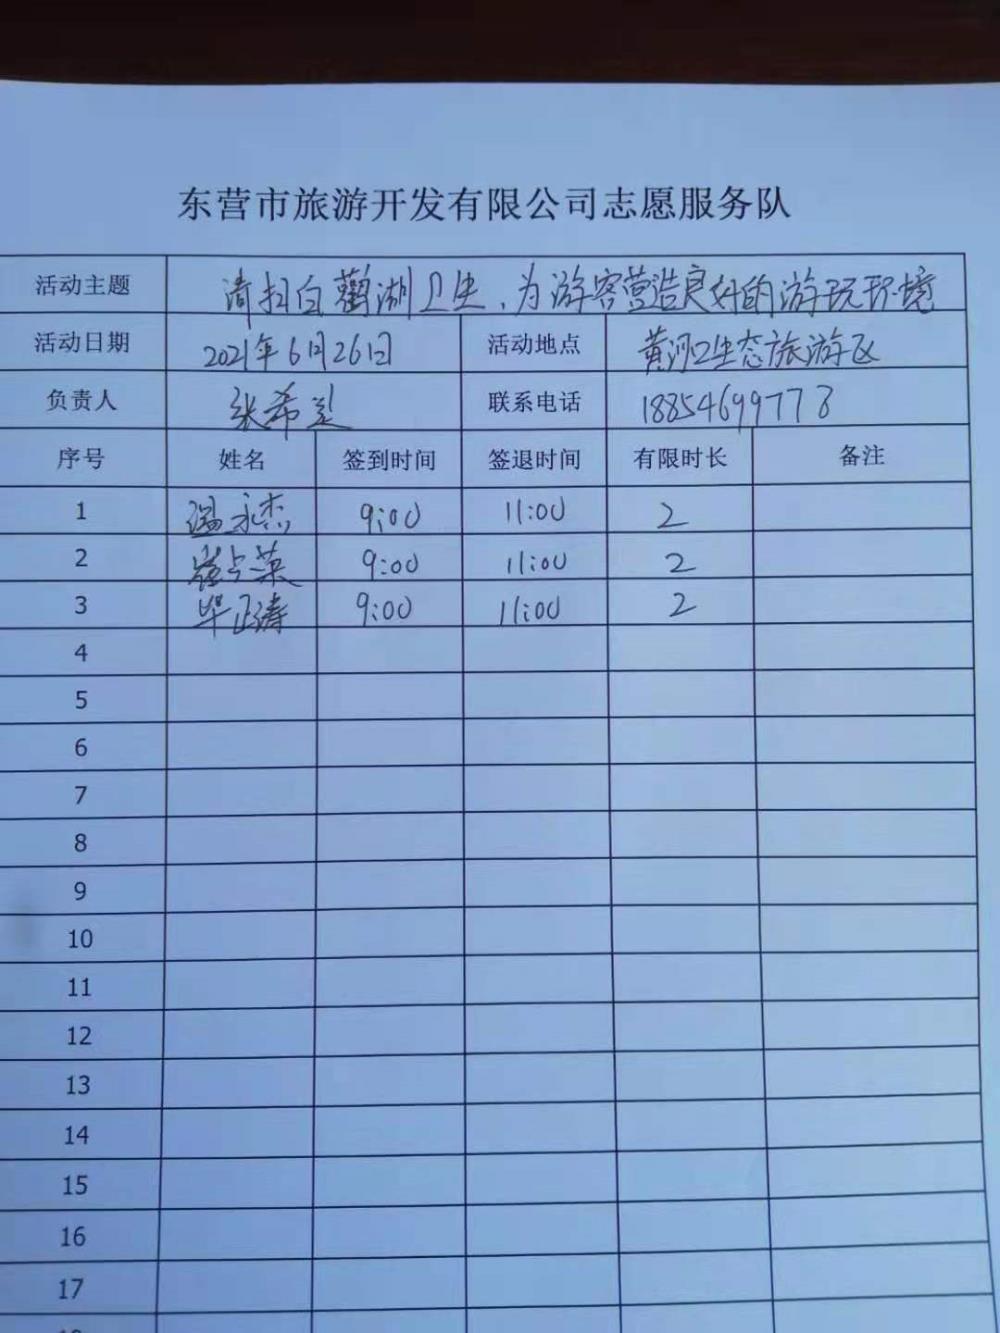 东营市旅游开发有限公司志愿服务队
活动主题 清扫白鹳湖卫生、为游客营造良好的游玩环境
活动日期 2021年6月26日 活动地点 黄河口生态旅游区
负责人 张希 联系电话 18854699778
序号 姓名 签到时间 签退时间 有限时长 备注
1 温永杰 9:00 11:00 2
2 崔占英 9:00 11:00 2
3 毕正涛 9:00 11:00 2
4
5
6
7
8
9
10
11
12
13
14
15
16
17